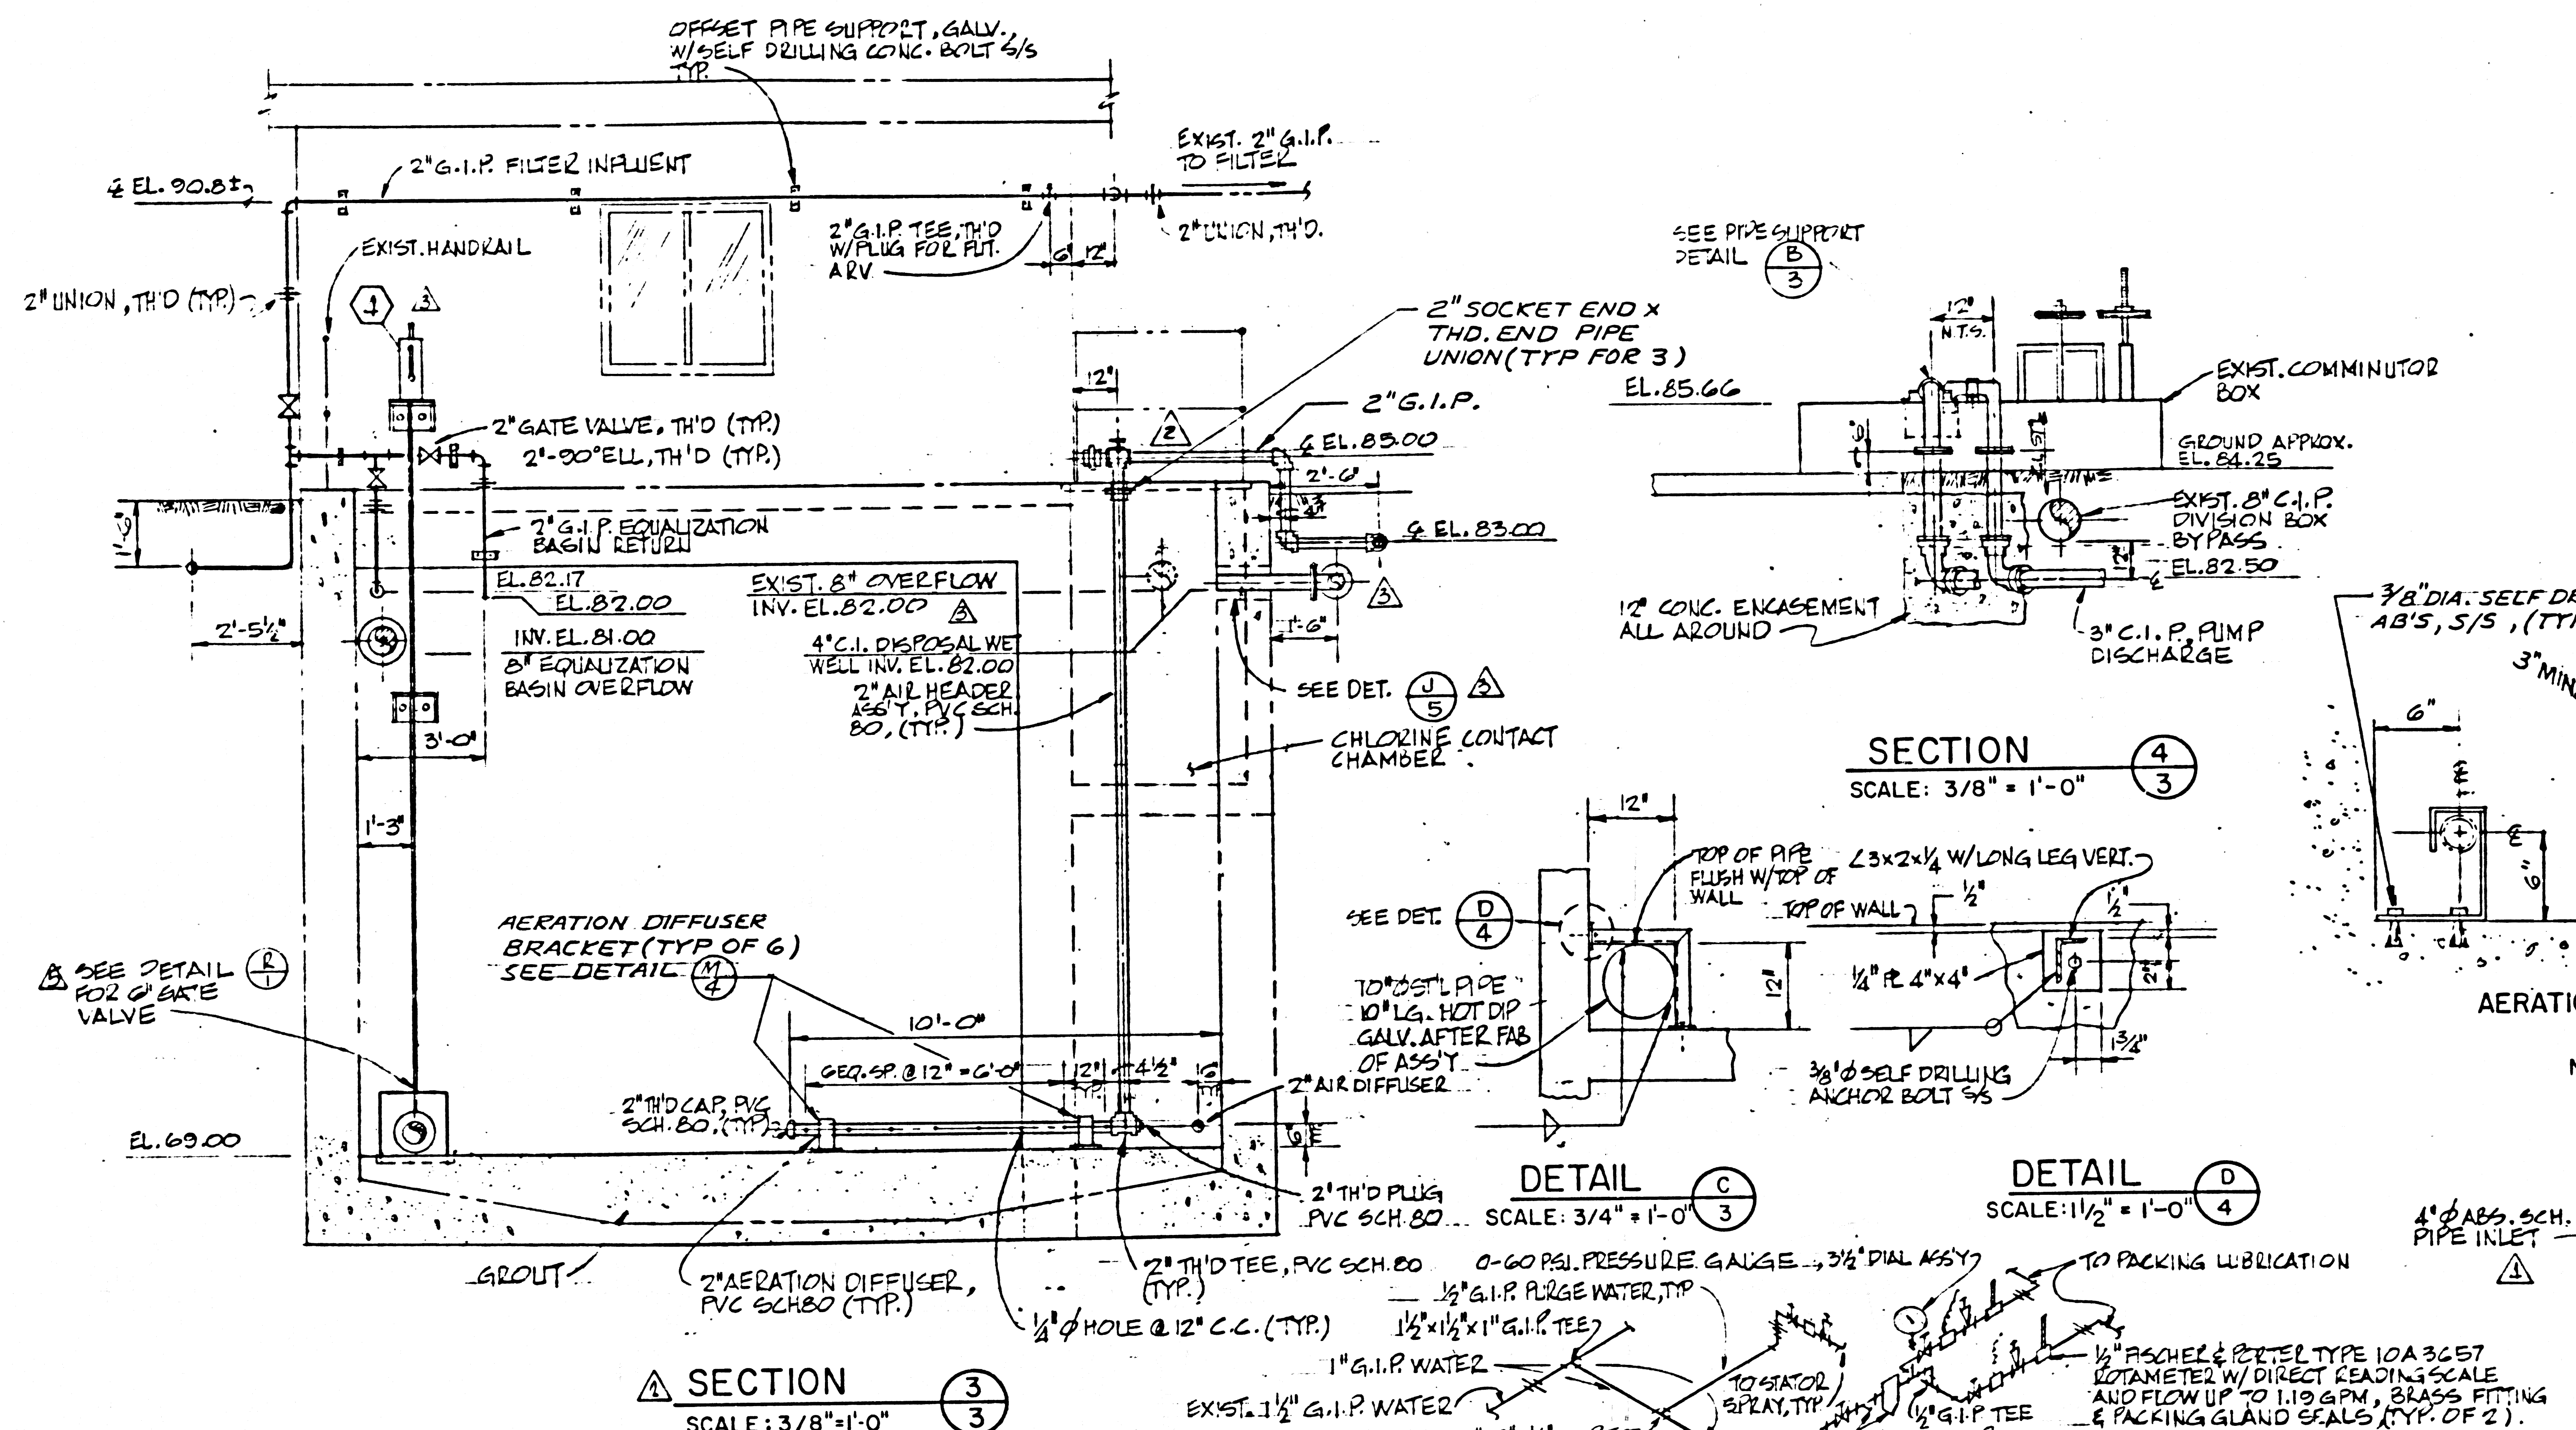 OFFSET PIPE SUPPORT, GALV.,
W/SELF DRILLING CONC. BOLT S/S
TYP.
EXIST. 2" G.I.P.
TO FILTER
2" G.I.P. FILTER INFLUENT
℄ EL. 90.8±
2" G.I.P. TEE, TH'D
W/PLUG FOR FUT.
ARV
6"
12"
2" UNION, TH'D.
EXIST. HANDRAIL
2" UNION, TH'D (TYP.)
1
3
2" SOCKET END X
THD. END PIPE
UNION (TYP FOR 3)
12"
2" G.I.P.
2
℄ EL. 85.00
2" GATE VALVE, TH'D (TYP.)
2"-90° ELL, TH'D (TYP.)
2'-6"
1'-6"
2" G.I.P. EQUALIZATION
BASIN RETURN
℄ EL. 83.00
EL. 82.17
EL. 82.00
EXIST. 8" OVERFLOW
INV. EL. 82.00
3
3
INV. EL. 81.00
8" EQUALIZATION
BASIN OVERFLOW
4" C.I. DISPOSAL WE
WELL INV. EL. 82.00
2'-5½"
1'-6"
2" AIR HEADER
ASS'Y. PVC SCH.
80, (TYP.)
SEE DET. J/5
3
CHLORINE CONTACT
CHAMBER
3'-0"
1'-3"
AERATION DIFFUSER
BRACKET (TYP OF 6)
SEE DETAIL M/4
SEE DETAIL R/1
FOR 6" GATE
VALVE
10'-0"
6 EQ. SP. @ 12" = 6'-0"
12"
4½"
6"
2" AIR DIFFUSER
2" TH'D CAP, PVC
SCH. 80, (TYP)
EL. 69.00
6"
2" TH'D PLUG
PVC SCH. 80
GROUT
2" AERATION DIFFUSER,
PVC SCH80 (TYP.)
2" TH'D TEE, PVC SCH. 80
(TYP.)
¼" Ø HOLE @ 12" C.C. (TYP.)
SECTION 3/3
SCALE: 3/8"=1'-0"
SEE PIPE SUPPORT
DETAIL B/3
12"
N.T.S.
EL. 85.66
EXIST. COMMINUTOR
BOX
GROUND APPROX.
EL. 84.25
EXIST. 8" C.I.P.
DIVISION BOX
BYPASS
EL. 82.50
12" CONC. ENCASEMENT
ALL AROUND
3" C.I.P. PUMP
DISCHARGE
SECTION 4/3
SCALE: 3/8" = 1'-0"
12"
TOP OF PIPE
FLUSH W/TOP OF
WALL
SEE DET. D/4
12"
10" LG. HOT DIP
GALV. AFTER FAB
OF ASS'Y
DETAIL C/3
SCALE: 3/4" = 1'-0"
∠3×2×¼ W/LONG LEG VERT.
½"
TOP OF WALL
1½"
¼" PL 4"×4"
2"
1¾"
3/8"Ø SELF DRILLING
ANCHOR BOLT S/S
DETAIL D/4
SCALE: 1½" = 1'-0"
3/8" DIA. SELF DR
AB'S, S/S, (TY
3" MIN
6"
℄
6"
AERATI
4" Ø ABS. SCH.
PIPE INLET
1
0-60 P.S.I. PRESSURE GAUGE, 3½" DIAL ASS'Y
TO PACKING LUBRICATION
½" G.I.P. PURGE WATER, TYP
1½"×1½"×1" G.I.P. TEE
1" G.I.P. WATER
EXIST. 1½" G.I.P. WATER
TO STATOR
SPRAY, TYP
½" G.I.P. TEE
½" FISCHER & PORTER TYPE 10A3657
ROTAMETER W/ DIRECT READING SCALE
AND FLOW UP TO 1.19 GPM, BRASS FITTING
& PACKING GLAND SEALS (TYP. OF 2).